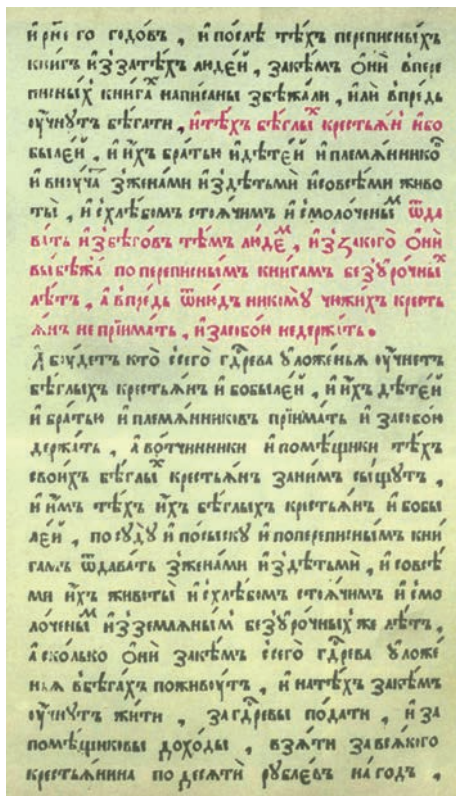 и҆ рн҃е го годо́въ , и҆ по́слѣ тѣ́хъ переписны́хъ
кни́гъ и҆з̾ затѣ́хъ люде́й , за ке́мъ ѻ҆нѝ в̾пере
писны́хъ кни́гахъ напи́саны збѣжа́ли , и҆лѝ впре́дь
ᲂу҆чну́тъ бѣ́гати , и҆ тѣ́хъ бѣ́глыⷯ крестьѧ́нъ и҆ бо
былѐй , и҆ и҆́хъ бра́тью и҆ дѣте́й и҆ племѧ́нникоⷡ
и҆ внꙋча́тъ з̾жена́ми и҆ з̾дѣтьмѝ и҆ совсѣ́ми живо
ты̀ , и҆ схлѣ́бомъ стоѧ́чимъ и҆ смоло́ченыⷨ ѿда
ва́ть и҆з̾бѣго́въ тѣ́мъ лю́деⷨ , и҆з̾ закого̀ ѻ҆нѝ
вы́бѣжа по переписны́мъ кни́гамъ без̾ᲂуро́чныⷯ
лѣ́тъ , а҆ впре́дь ѿню́дь никомꙋ̀ чюжи́хъ кресть
ѧ́нъ не прїима́ть , и҆ засобо́ю недержа́ть .
А҆ бꙋ́детъ кто̀ ссегѡ̀ гдⷭ҇рева ᲂуложе́ньѧ ᲂу҆чне́тъ
бѣ́глыхъ крестьѧ́нъ и҆ бобыле́й , и҆ и҆́хъ дѣте́й
и҆ бра́тью и҆ племѧ́нниковъ прїима́ть и҆ засобо́ю
держа́ть , а҆ во́тчинники и҆ помѣ́щики тѣ́хъ
свои́хъ бѣ́глыⷯ крестьѧ́нъ зани́мъ сы́щꙋтъ ,
и҆ и҆́мъ тѣ́хъ и҆́хъ бѣ́глыхъ крестьѧ́нъ и҆ бобы
лѐй , по сꙋдꙋ̀ и҆ по сы́скꙋ и҆ попереписны́мъ кни́
гамъ ѿдава́ть з̾жена́ми и҆ з̾дѣтьмѝ , и҆ совсѣ́
ми и҆́хъ животы̀ и҆ схлѣ́бомъ стоѧ́чимъ и҆ смо
ло́ченыⷨ и҆ з̾земѧны́мъ без̾ᲂуро́чныхъ же лѣ́тъ ,
а҆ ско́лько ѻ҆нѝ за ке́мъ ссегѡ̀ гдⷭ҇рева ᲂуложе́
ньѧ в̾бѣга́хъ поживꙋ́тъ , и҆ натѣ́хъ за ке́мъ
ᲂу҆чнꙋ́тъ жи́ти , за гдⷭ҇ревы по́дати , и҆ за
помѣ́щиковы дохо́ды , взѧ́ти за всѧ́кого
крестьѧ́нина по десѧтѝ рꙋбле́въ на́ годъ ,